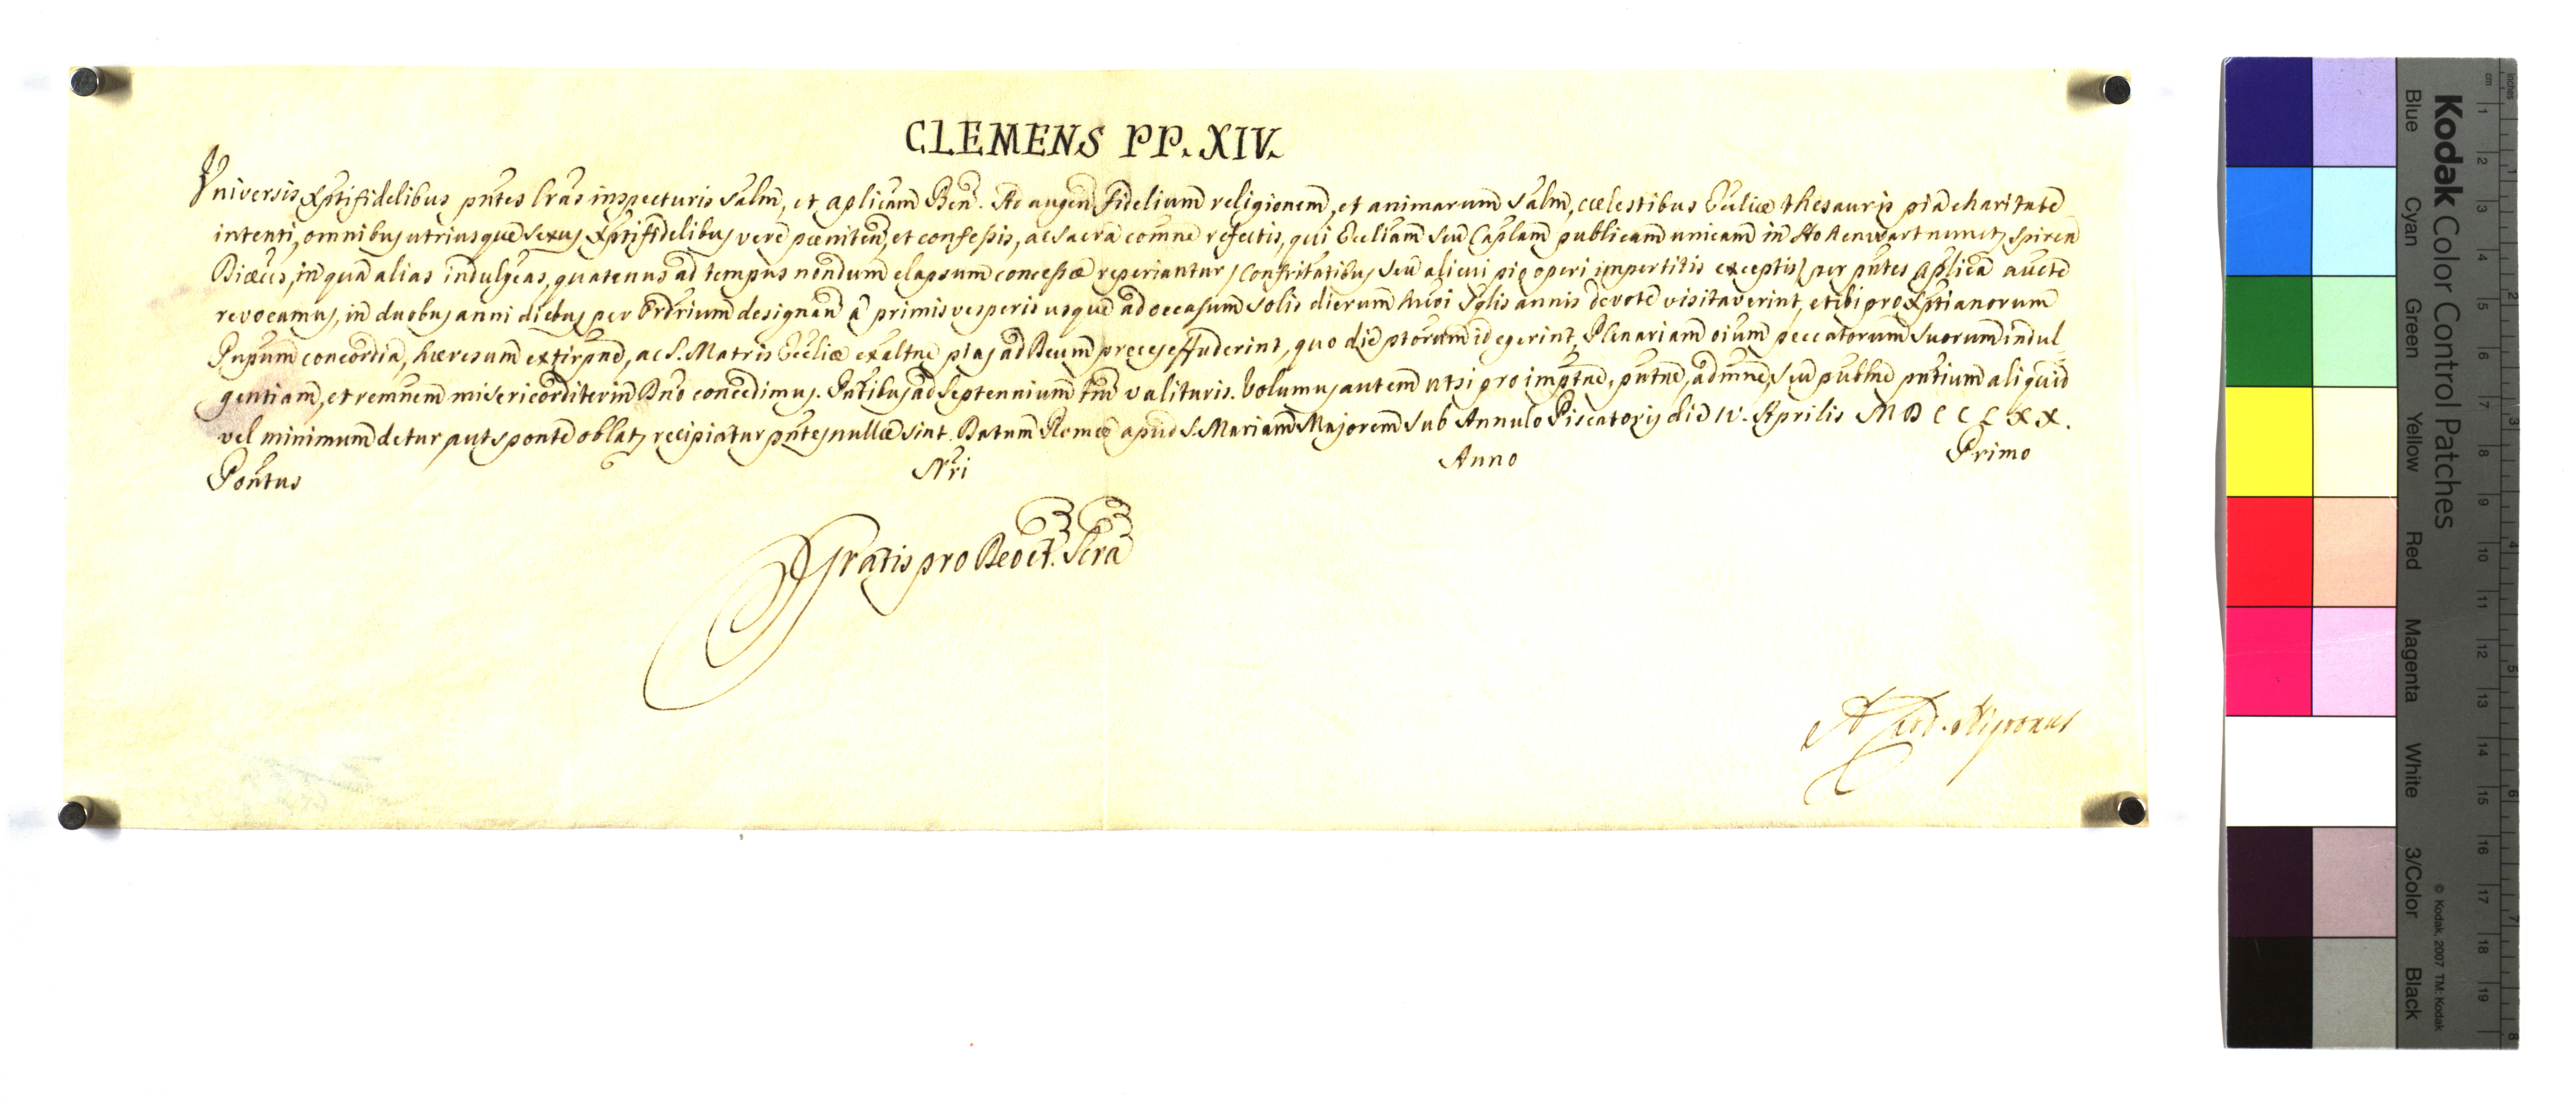 CLEMENS PP. XIV.
Universis Xptifidelibus pntes lras inspecturis Salm, et aplicam Ben. Ad augen fidelium religionem, et animarum Salm, cælestibus Ecclíæ thesauris pia charitate
intenti, omnibus utriusque sexus Xptifidelibus vere pœniten, et confessis, ac Sacra comne refectis, qui Eccliam seu Caplam publicam unicam in Hohenwart nuncu Spiren
Diæcis, in qua alias indulgeas, quatenus ad tempus nondum elapsum concessæ reperiantur, Confritatibus seu alicui pio operi impertitis exceptis, per pntes Aplica aucte
revocamus, in duobus anni diebus per Ordrium designan a primis vesperis usque ad occasum Solis dierum hmoi Sglis annis devote visitaverint, et ibi pro Xptianorum
Pnpum concordia, hæresum extirpne, ac S. Matris Eccliæ exaltne pias ad Deum preces effuderint, quo die ptorum id egerint, Plenariam oium peccatorum Suorum indul
gentiam, et remnem misericorditer in Dno concedimus. Pntibus ad Septennium tm valituris. Volumus autem ut si pro imptne, pntne, admne, Seu publne pntium aliquid
vel minimum detur, aut sponte oblat, recipiatur pntes nullæ Sint. Datum Romæ apud S. Mariam Majorem Sub Annulo Piscatoris die IV. Aprilis M D C C L X X.
Pontus Nri Anno Primo
Gratis pro Deo et Scra
A Card. Nigronus
Kodak Color Control Patches
© Kodak, 2007 TM: Kodak
Blue Cyan Green Yellow Red Magenta White 3/Color Black
cm 1 2 3 4 5 6 7 8 9 10 11 12 13 14 15 16 17 18 19
inches 1 2 3 4 5 6 7 8